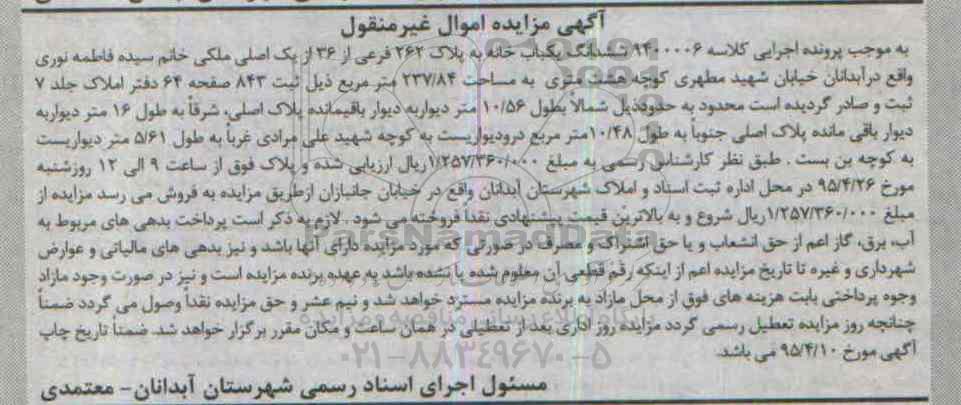 آگهی مزایده اموال غیرمنقول
به موجب پرونده اجرایی کلاسه ۹۴۰۰۰۰۶ ششدانگ یکباب خانه به پلاک ۲۶۲ فرعی از ۳۶ از یک اصلی ملکی خانم سیده فاطمه نوری
واقع درآبدانان خیابان شهید مطهری کوچه هشت متری به مساحت ۲۳۷/۸۴ متر مربع ذیل ثبت ۸۴۳ صفحه ۶۴ دفتر املاک جلد ۷
ثبت و صادر گردیده است محدود به حدودذیل شمالاً بطول ۱۰/۵۶ متر دیواربه دیوار باقیمانده پلاک اصلی، شرقاً به طول ۱۶ متر دیواربه
دیوار باقی مانده پلاک اصلی جنوباً به طول ۱۰/۴۸متر مربع درودیواریست به کوچه شهید علی مرادی غرباً به طول ۵/۶۱ متر دیواریست
به کوچه بن بست . طبق نظر کارشناس رسمی به مبلغ ۱/۲۵۷/۳۶۰/۰۰۰ریال ارزیابی شده و پلاک فوق از ساعت ۹ الی ۱۲ روزشنبه
مورخ ۹۵/۴/۲۶ در محل اداره ثبت اسناد و املاک شهرستان آبدانان واقع در خیابان جانبازان ازطریق مزایده به فروش می رسد مزایده از
مبلغ ۱/۲۵۷/۳۶۰/۰۰۰ریال شروع و به بالاترین قیمت پیشنهادی نقداً فروخته می شود . لازم به ذکر است پرداخت بدهی های مربوط به
آب، برق، گاز اعم از حق انشعاب و یا حق اشتراک و مصرف در صورتی که مورد مزایده دارای آنها باشد و نیز بدهی های مالیاتی و عوارض
شهرداری و غیره تا تاریخ مزایده اعم از اینکه رقم قطعی آن معلوم شده یا نشده باشد به عهده برنده مزایده است و نیز در صورت وجود مازاد
وجوه پرداختی بابت هزینه های فوق از محل مازاد به برنده مزایده مسترد خواهد شد و نیم عشر و حق مزایده نقداً وصول می گردد ضمناً
چنانچه روز مزایده تعطیل رسمی گردد مزایده روز اداری بعد از تعطیلی در همان ساعت و مکان مقرر برگزار خواهد شد. ضمناً تاریخ چاپ
آگهی مورخ ۹۵/۴/۱۰ می باشد.
۰۲۱-۸۸۳۴۹۶۷۰-۵
مسئول اجرای اسناد رسمی شهرستان آبدانان- معتمدی